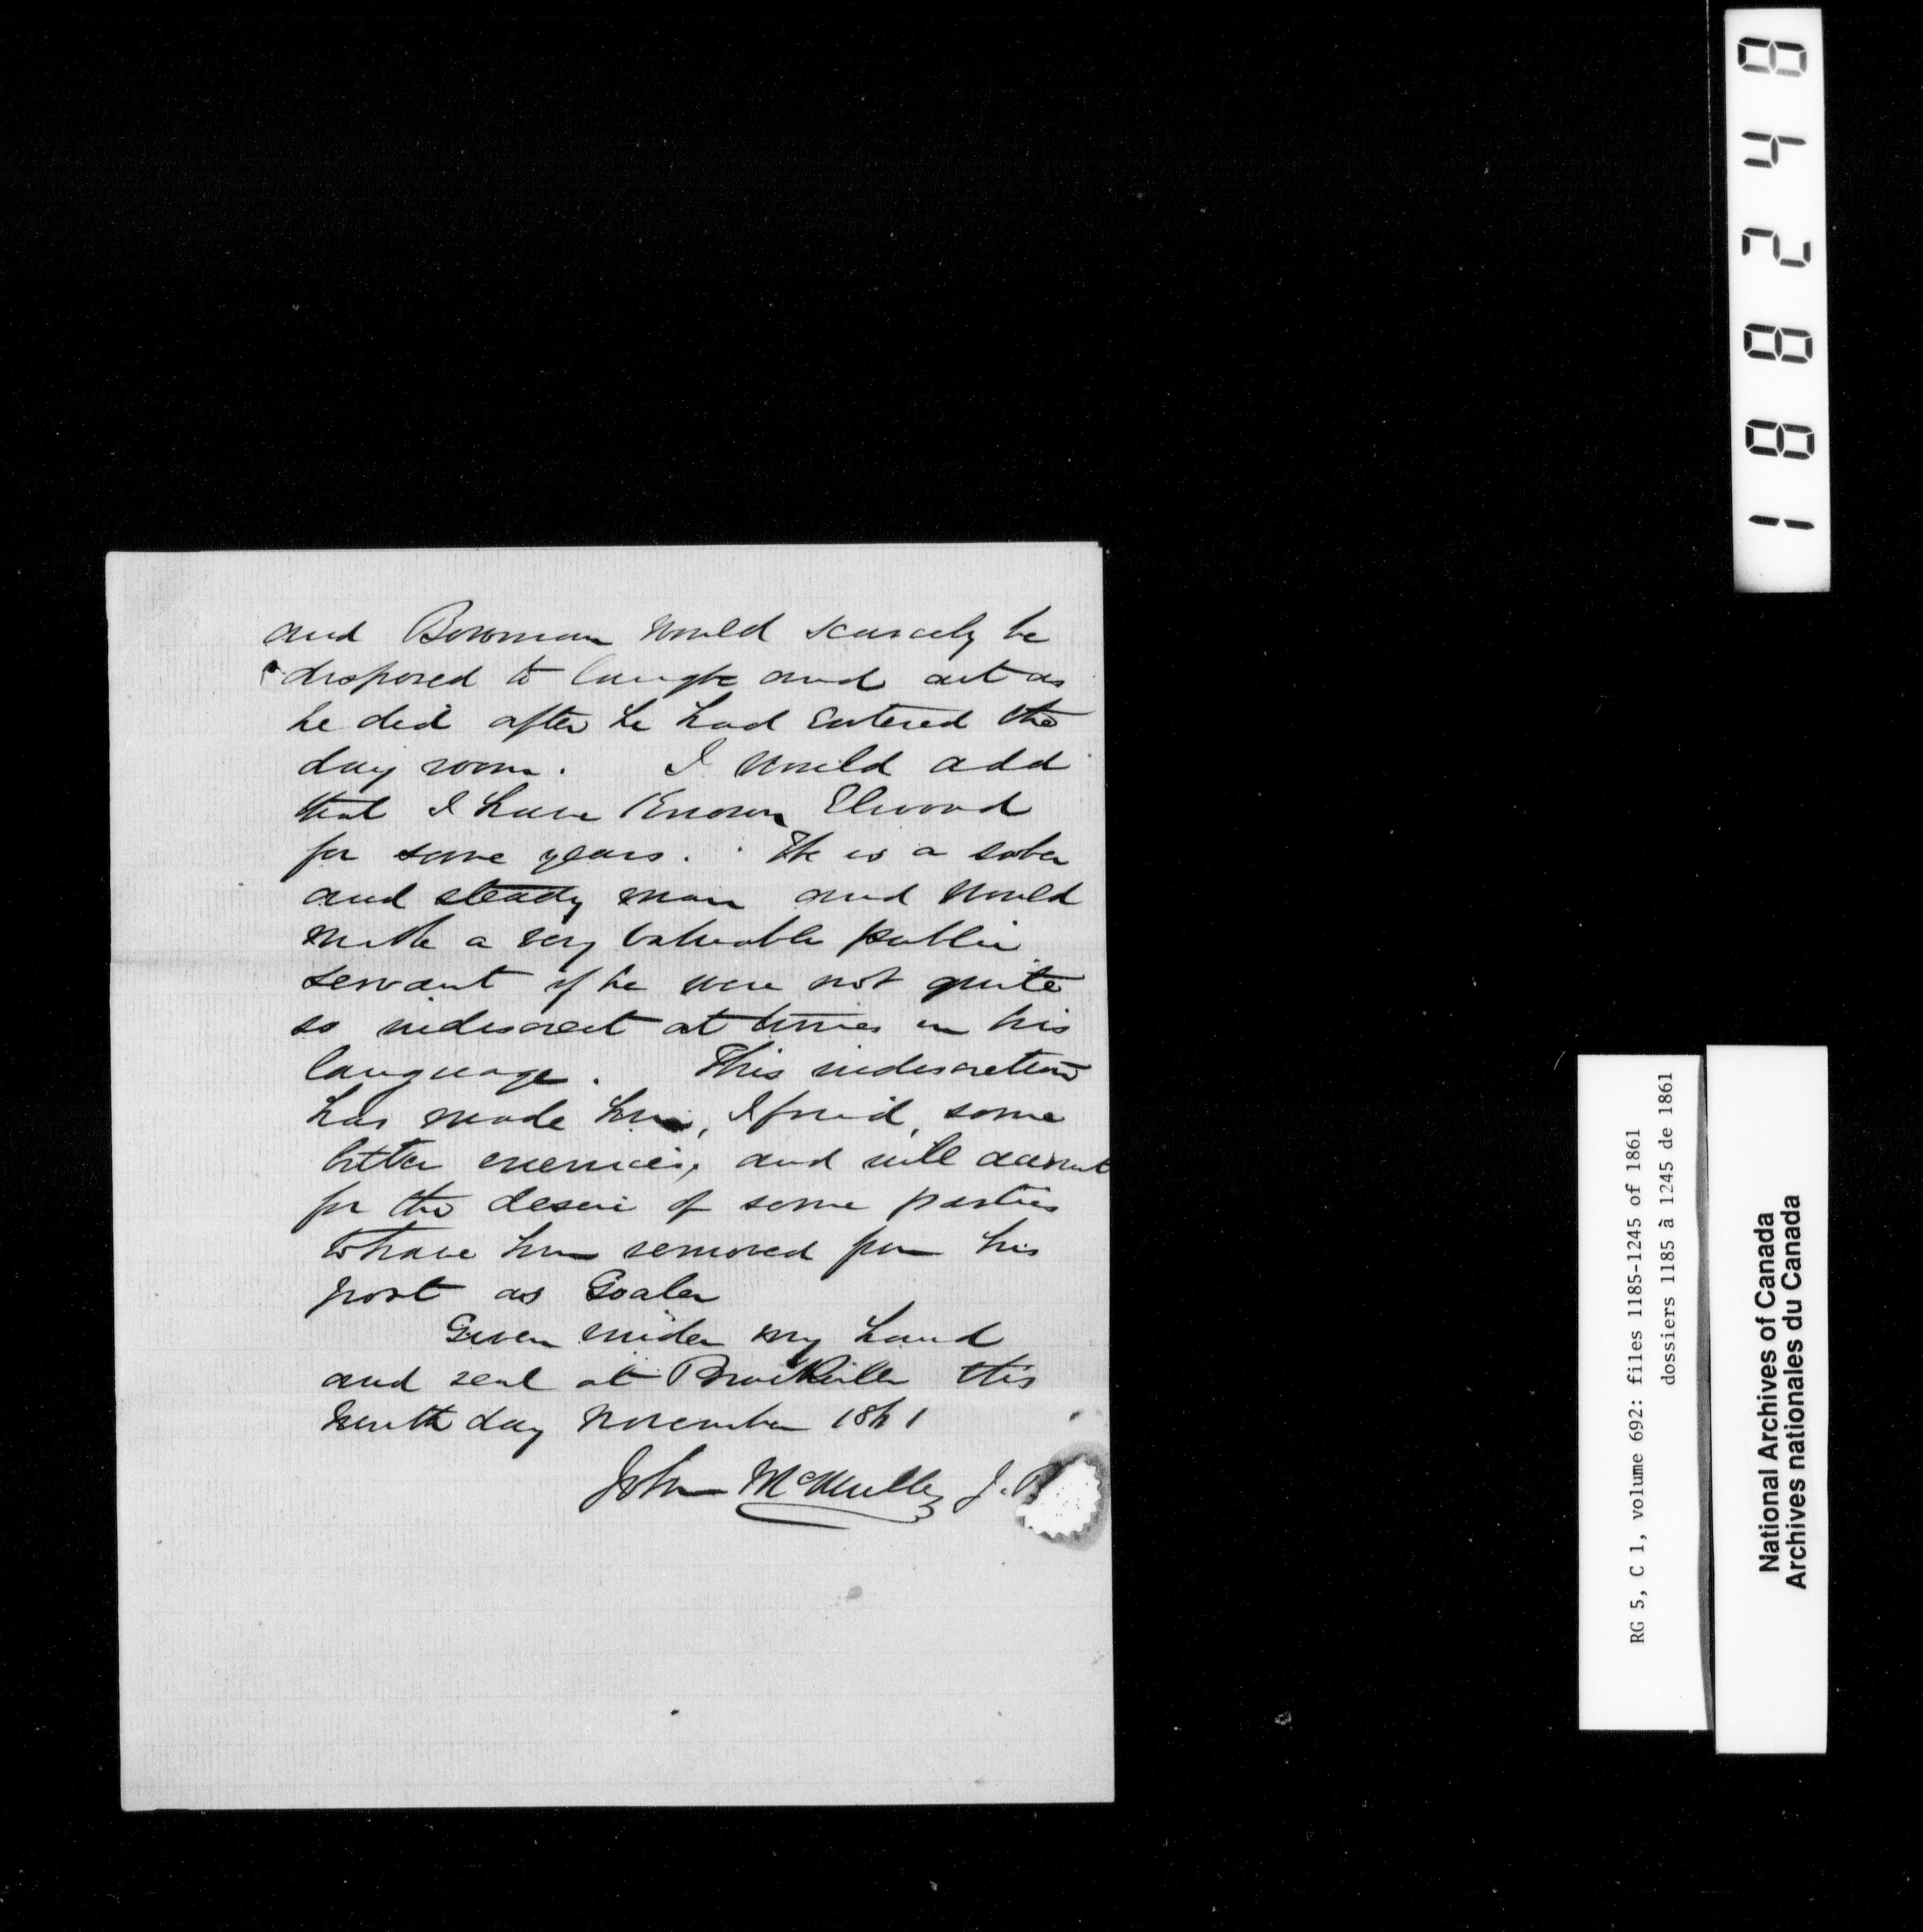 and Bowman would scarcely be
disposed to laugh and act as
he did after he had entered the
day room. I would add
that I have known Elwood
for some years. He is a sober
and steady man and would
make a very valuable public
servant if he were not quite
so indiscreet at times in his
language. This indiscretion
has made him, I find, some
bitter enemies, and will account
for the desire of some parties
to have him removed from his
post as Goaler
Given under my hand
and seal at Brockville this
day November 1861
John McMullen J.P
188248
RG 5, C 1, volume 692: files 1185-1245 of 1861
dossiers 1185 à 1245 de 1861
National Archives of Canada
Archives nationales du Canada